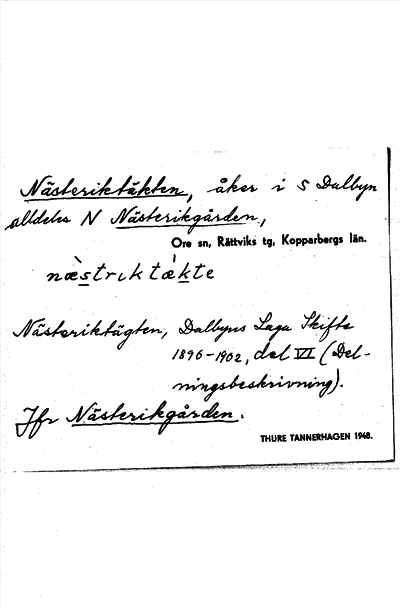 Nästeriktäkten, åker i S Dalbyn
alldeles N Nästerikgården,
Ore sn, Rättviks tg, Kopparbergs län.
næ̀striktækte
Nästeriktägten, Dalbyns Laga Skifte
1896-1902, del VI (Del-
ningsbeskrivning).
Jfr Nästerikgården.
THURE TANNERHAGEN 1948.